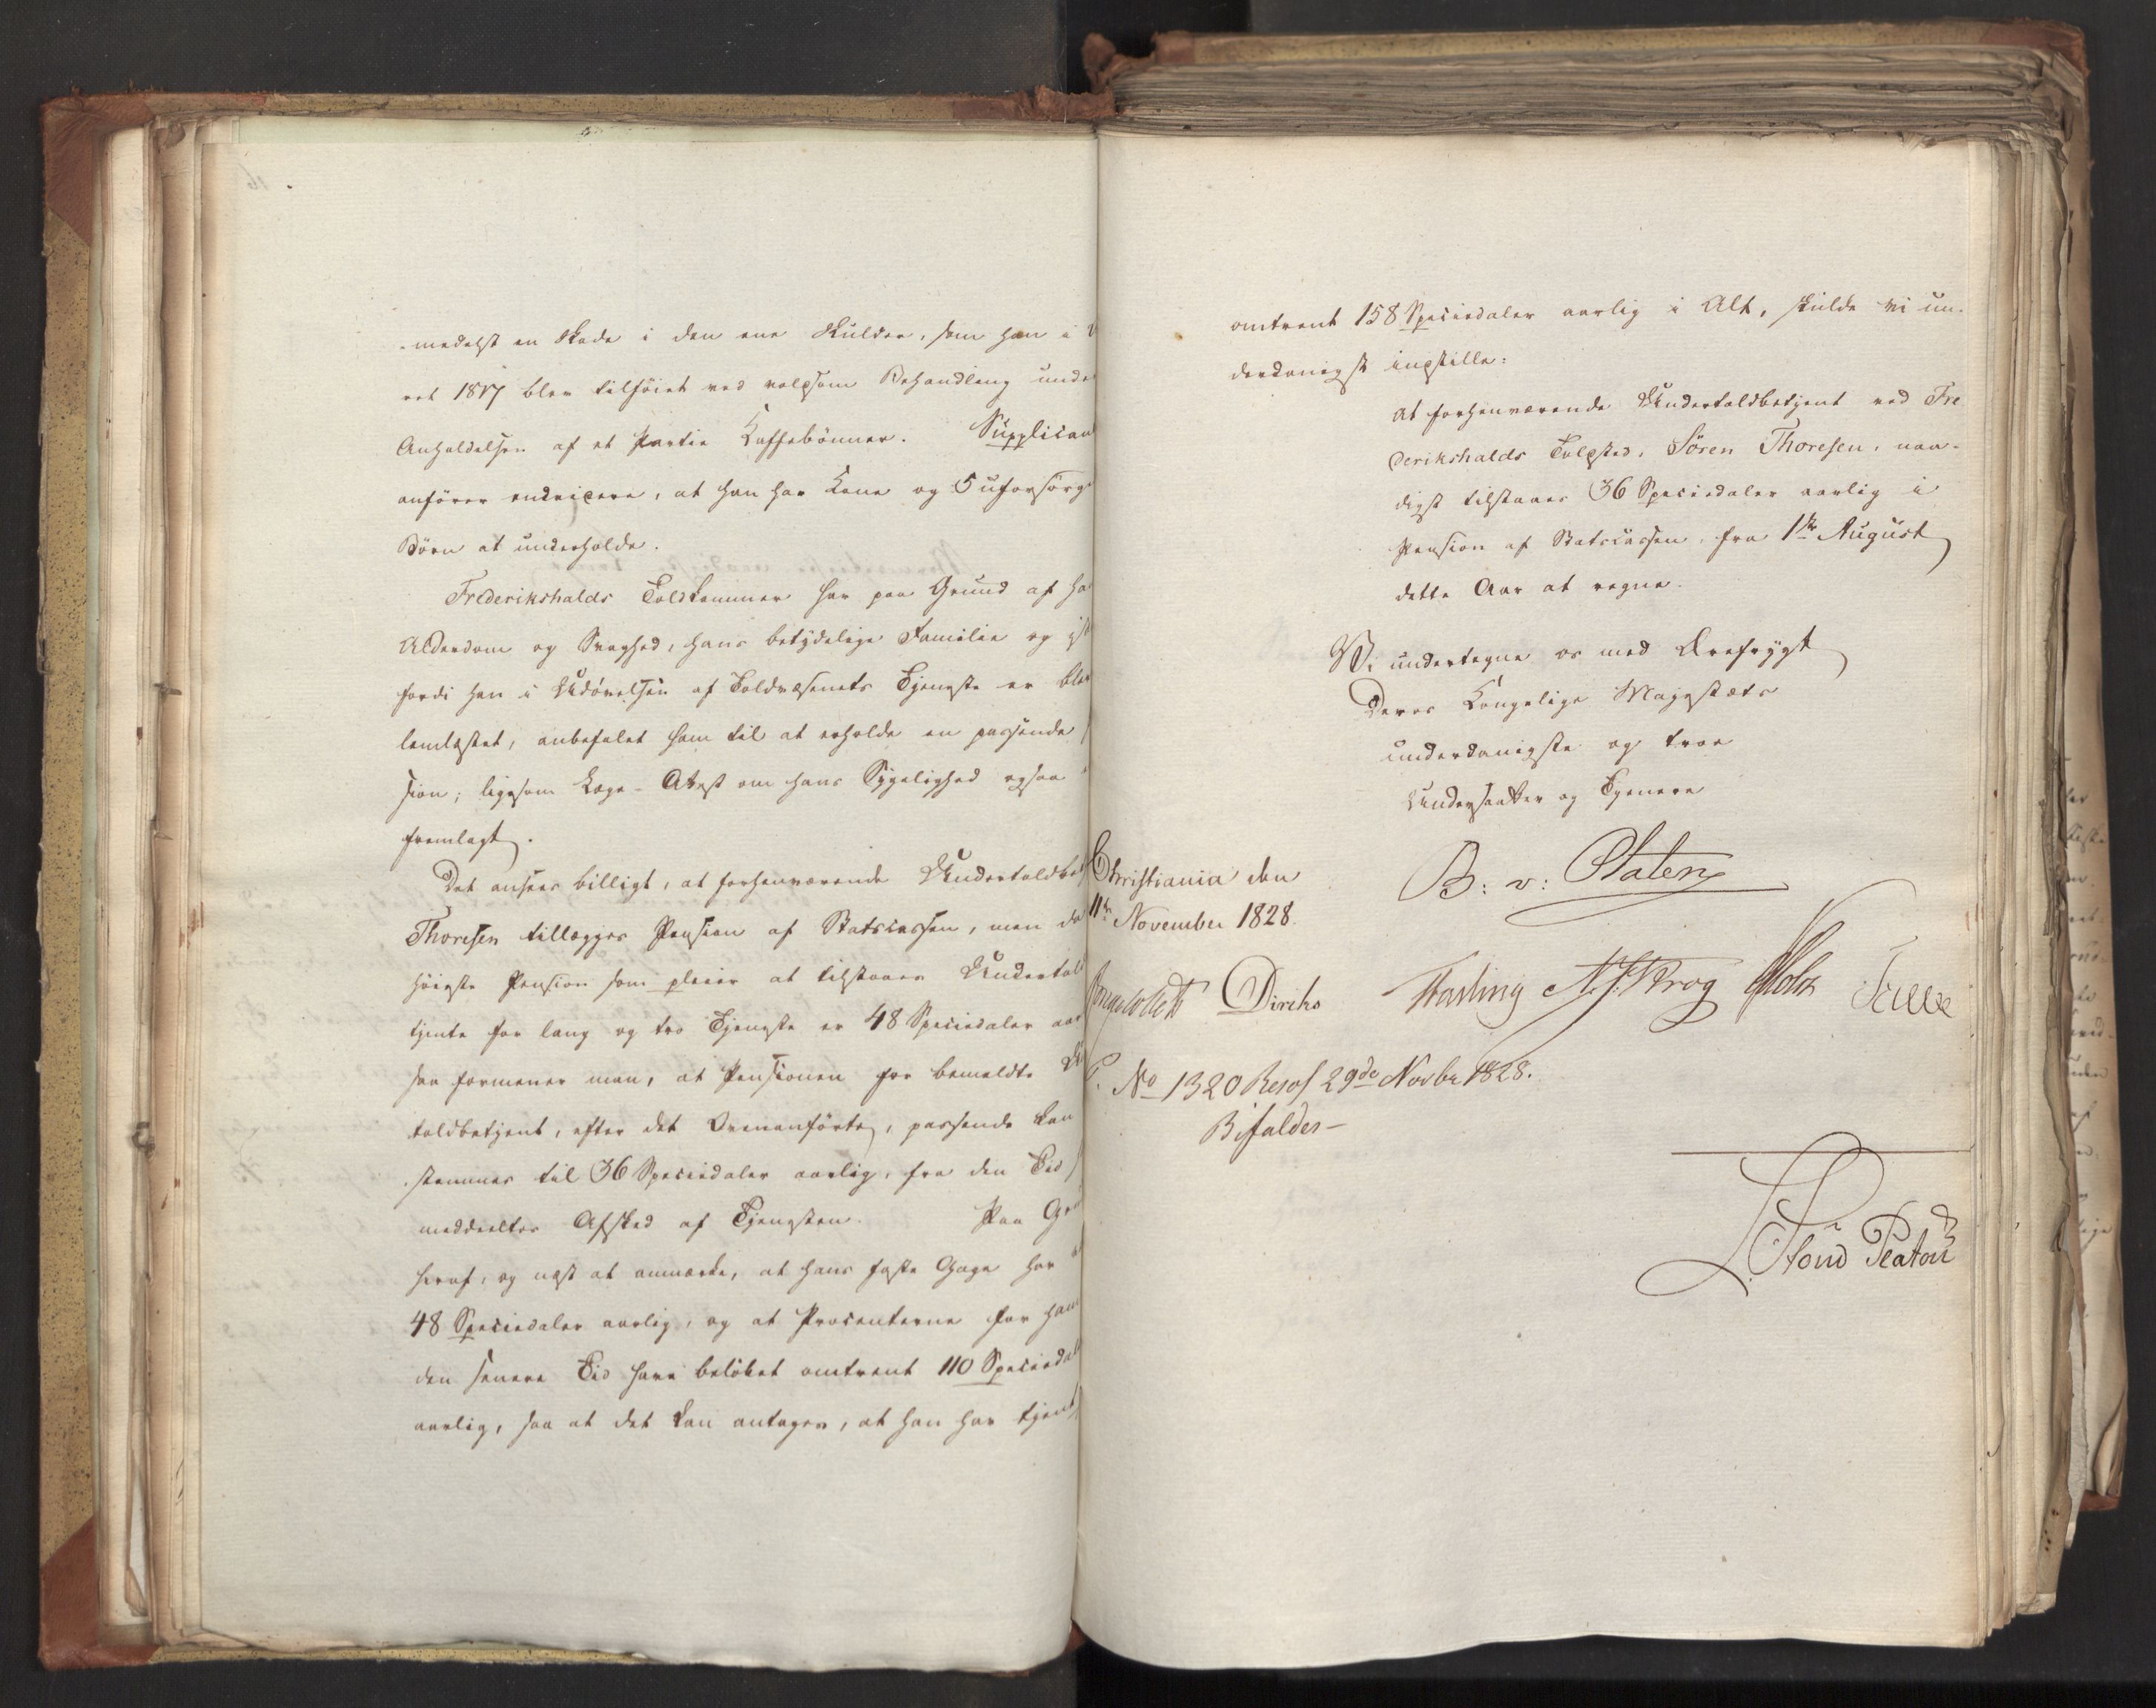 -medelst en Skade i den ene Skulder, som han i
ret 1817 blev tilføiet ved voldsom Behandling unde
Anholdelsen af et Partie Caffebønner. Supplican
anfører endvidere, at han har Kone og 5 uforsørge
Børn at underholde.
Frederikshalds Toldkammer har paa Grund af ha
Alderdom og Svaghed, hans betydelige Familie og
fordi han i Udøvelsen af Toldvæsenets Tjeneste er blev
lemlæstet, anbefalet ham til at erholde en passende
sion; ligesom Læge-Attest om hans Sygelighed ogsaa
fremlagt.
Det ansees billigt, at forhenværende Undertoldbet
Thoresen tillægges Pension af Statscassen, men da
høieste Pension som pleier at tilstaaes Undertold
tjente for lang og tro Tjeneste er 48 Speciedaler aar
saa formener man, at Pensionen for bemeldte Un
toldbetjent, efter det Ovenanførte, passende kan
stemmes til 36 Speciedaler aarlig, fra den Tid
meddeeltes Afsked af Tjenesten. Paa Gru
heraf, og næst at anmærke, at hans faste Gage har
48 Speciedaler aarlig, og at Procenterne for ham
den senere Tid have beløbet omtrent 110 Speciedal
aarlig, saa at det kan antages, at han har tjent
omtrent 158 Speciedaler aarlig i Alt, skulde vi un-
derdanigst indstille:
at forhenværende Undertoldbetjent ved Fre
derikshalds Toldsted, Søren Thoresen, naa-
digst tilstaaes 36 Speciedaler aarlig i
Pension af Statscassen, fra 1ste August
dette Aar at regne.
Vi undertegne os med Ærefrygt
Deres Kongelige Majestæts
underdanigste og troe
Undersaatter og Tjenere
Christiania den
11te November 1828.
B: v: Platen
Jonas Collett Diriks Fasting N. J. Krog Holst
No 1320 Resol 29de Novbr 1828.
Bifaldes-